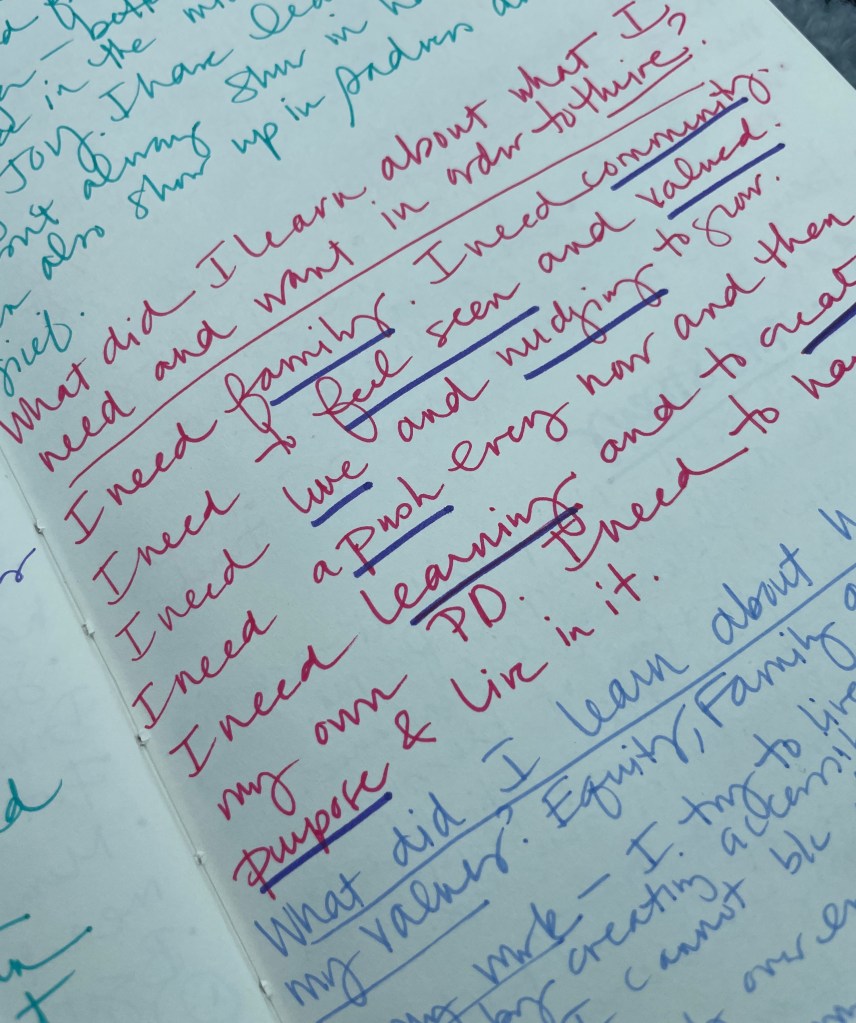 in the
JOY. I have
always show in
also show up in sadness
grief.
What did I learn about what I
need and want in order to thrive?
I need family. I need community.
I need to feel seen and valued.
I need love and nudging to grow.
I need a push every now and then
I need learning and to creat
my own PD. I need to ha
purpose & live in it.
What did I learn about h
my values? Equity, Family
my work - I try to live
by creating accessi
I cannot b/c
over